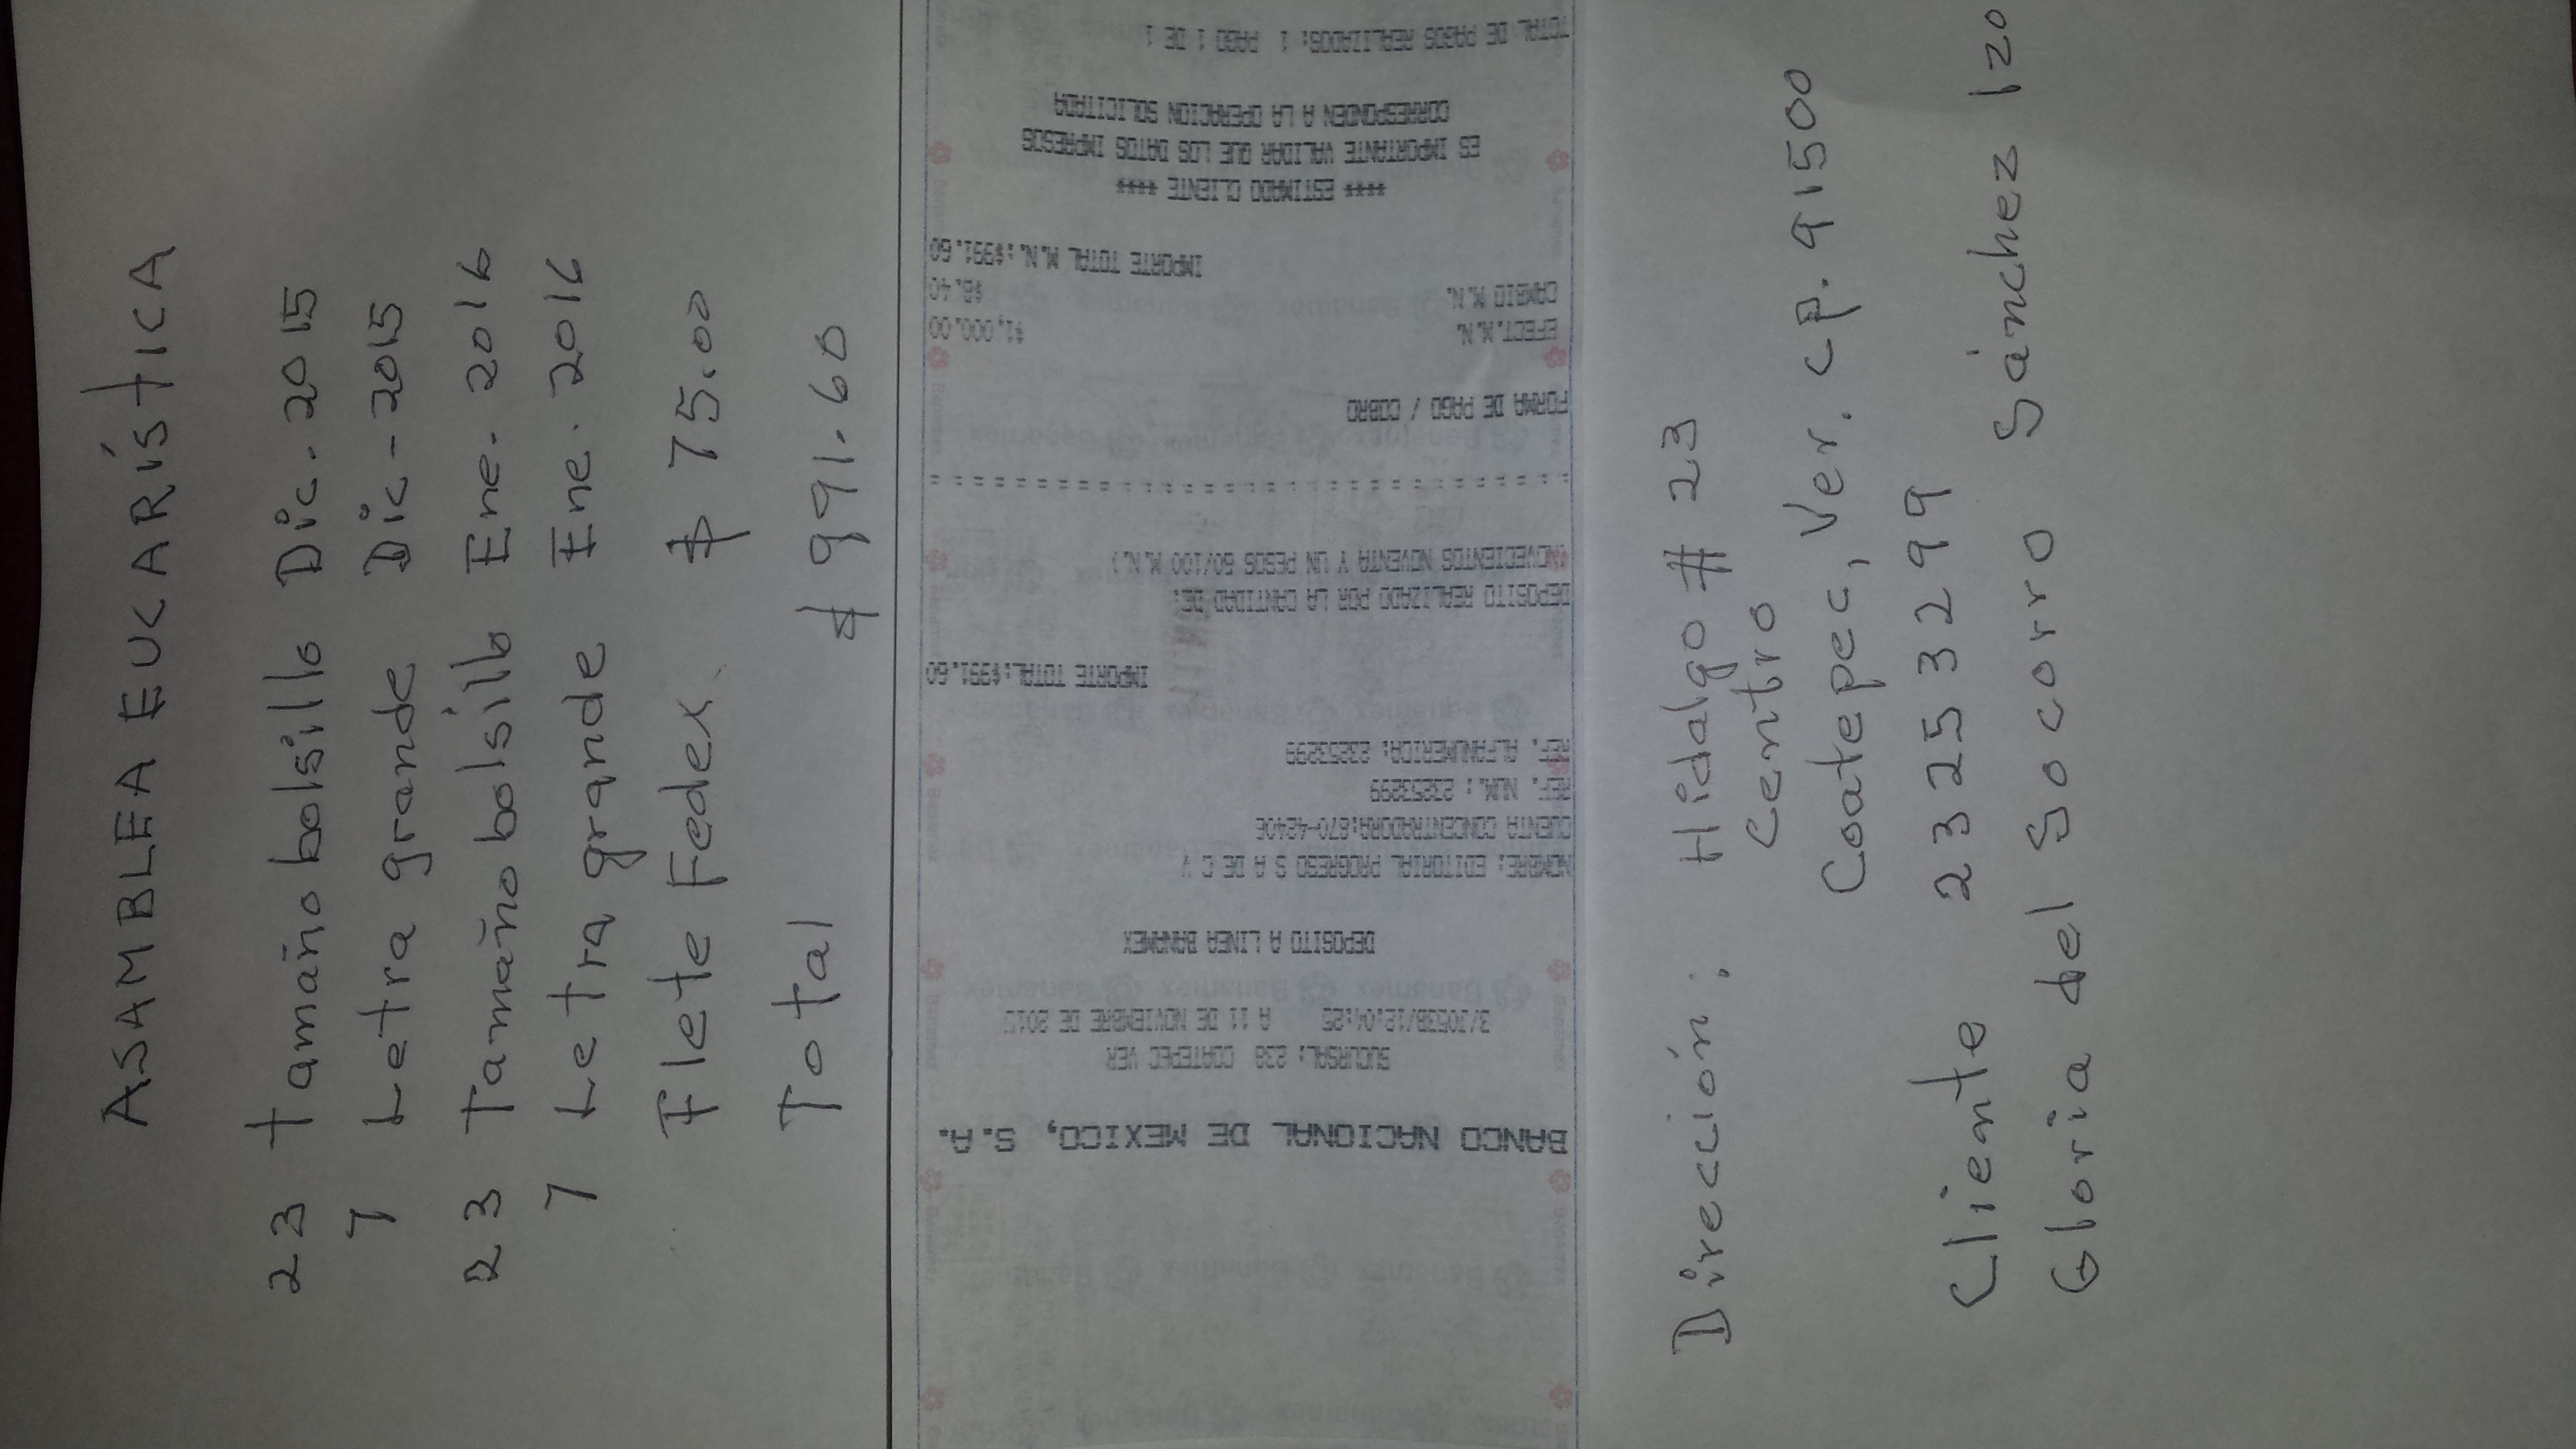 ASAMBLEA EUCARÍSTICA
23 tamaño bolsillo Dic. 2015
7 Letra grande Dic-2015
23 Tamaño bolsillo Ene. 2016
7 Letra grande Ene. 2016
Flete Fedex $ 75.00
Total $ 991.60
BANCO NACIONAL DE MEXICO, S.A.
SUCURSAL: 238 COATEPEC VER
A 11 DE NOVIEMBRE DE 2015
DEPOSITO A LINEA BANAMEX
NOMBRE: EDITORIAL PROGRESO S A DE C V
CUENTA CONCENTRADORA:870-42406
REF. NUM.: 23253299
REF. ALFANUMERICA: 23253299
IMPORTE TOTAL:$991.60
DEPOSITO REALIZADO POR LA CANTIDAD DE:
(NOVECIENTOS NOVENTA Y UN PESOS 60/100 M.N.)
FORMA DE PAGO / COBRO
EFECT.M.N. $1,000.00
CAMBIO M.N. $8.40
IMPORTE TOTAL M.N.:$991.60
**** ESTIMADO CLIENTE ****
ES IMPORTANTE VALIDAR QUE LOS DATOS IMPRESOS
CORRESPONDEN A LA OPERACION SOLICITADA
TOTAL DE PAGOS REALIZADOS: 1 PAGO 1 DE 1
Dirección: Hidalgo # 23
Centro
Coatepec, Ver. cp. 91500
Cliente 23253299
Gloria del Socorro Sánchez Izo